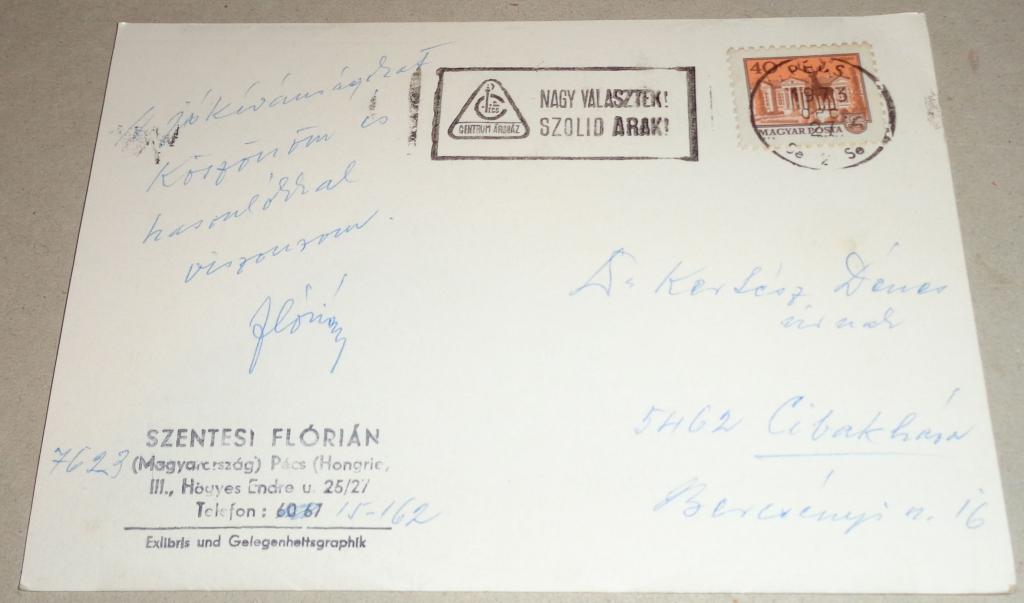 A jókívánságokat
köszönöm és
hasonlókkal
viszonzom.
Flórián
PÉCS
CENTRUM ÁRUHÁZ
NAGY VÁLASZTÉK!
SZOLID ÁRAK!
40
MAGYAR POSTA
PÉCS
1973
Dr Kertész Dénes
úrnak
5462 Cibakháza
Bercsényi u. 16
SZENTESI FLÓRIÁN
7623 (Magyarország) Pécs (Hongrie,
III., Hőgyes Endre u. 25/27
Telefon: 15-162
Exlibris und Gelegenheitsgraphik